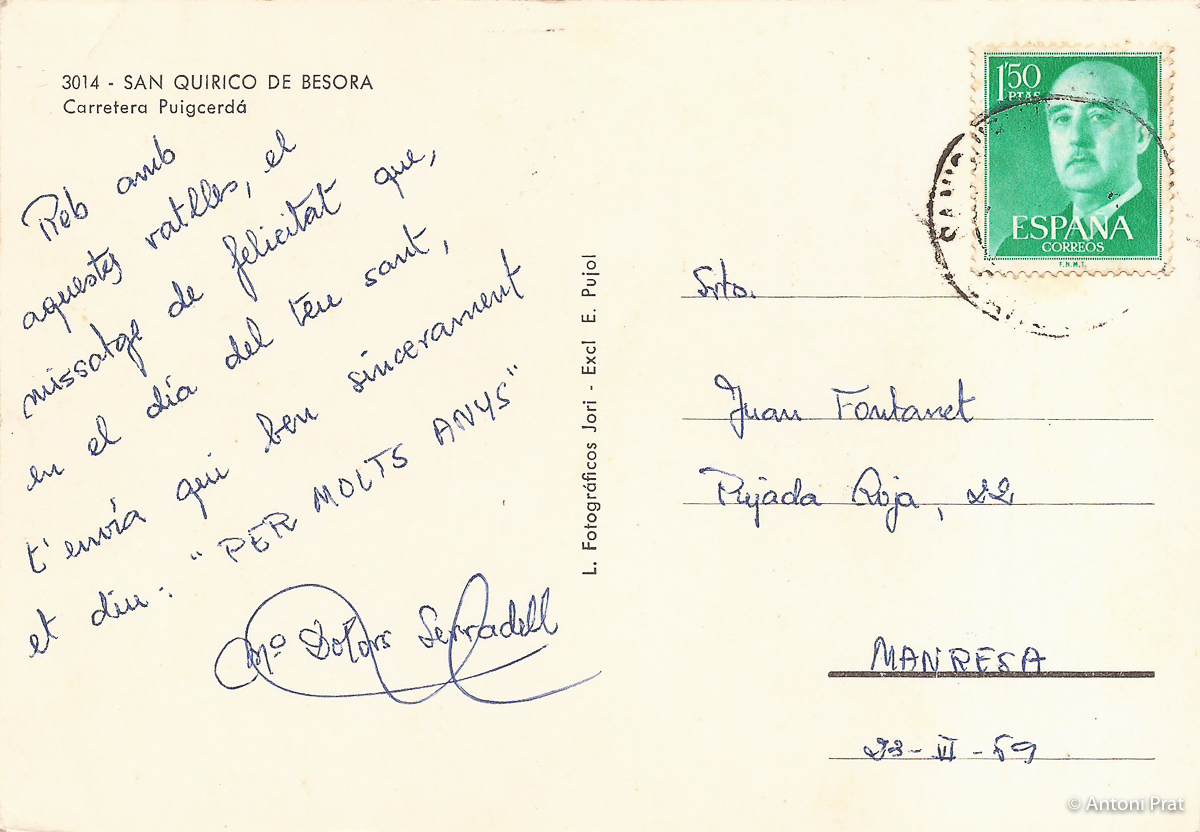 3014 - SAN QUIRICO DE BESORA
Carretera Puigcerdá
Reb amb
aquestes ratlles, el
missatge de felicitat que,
en el día del teu sant,
t'envía qui ben sincerament
et diu: "PER MOLTS ANYS"
Mª Dolors Serradell
L. Fotográficos Jori - Excl E. Pujol
1'50
PTAS
ESPAÑA
CORREOS
F.N.M.T.
Srto.
Juan Fontanet
Pujada Roja, 22
MANRESA
23-VI-69
© Antoni Prat